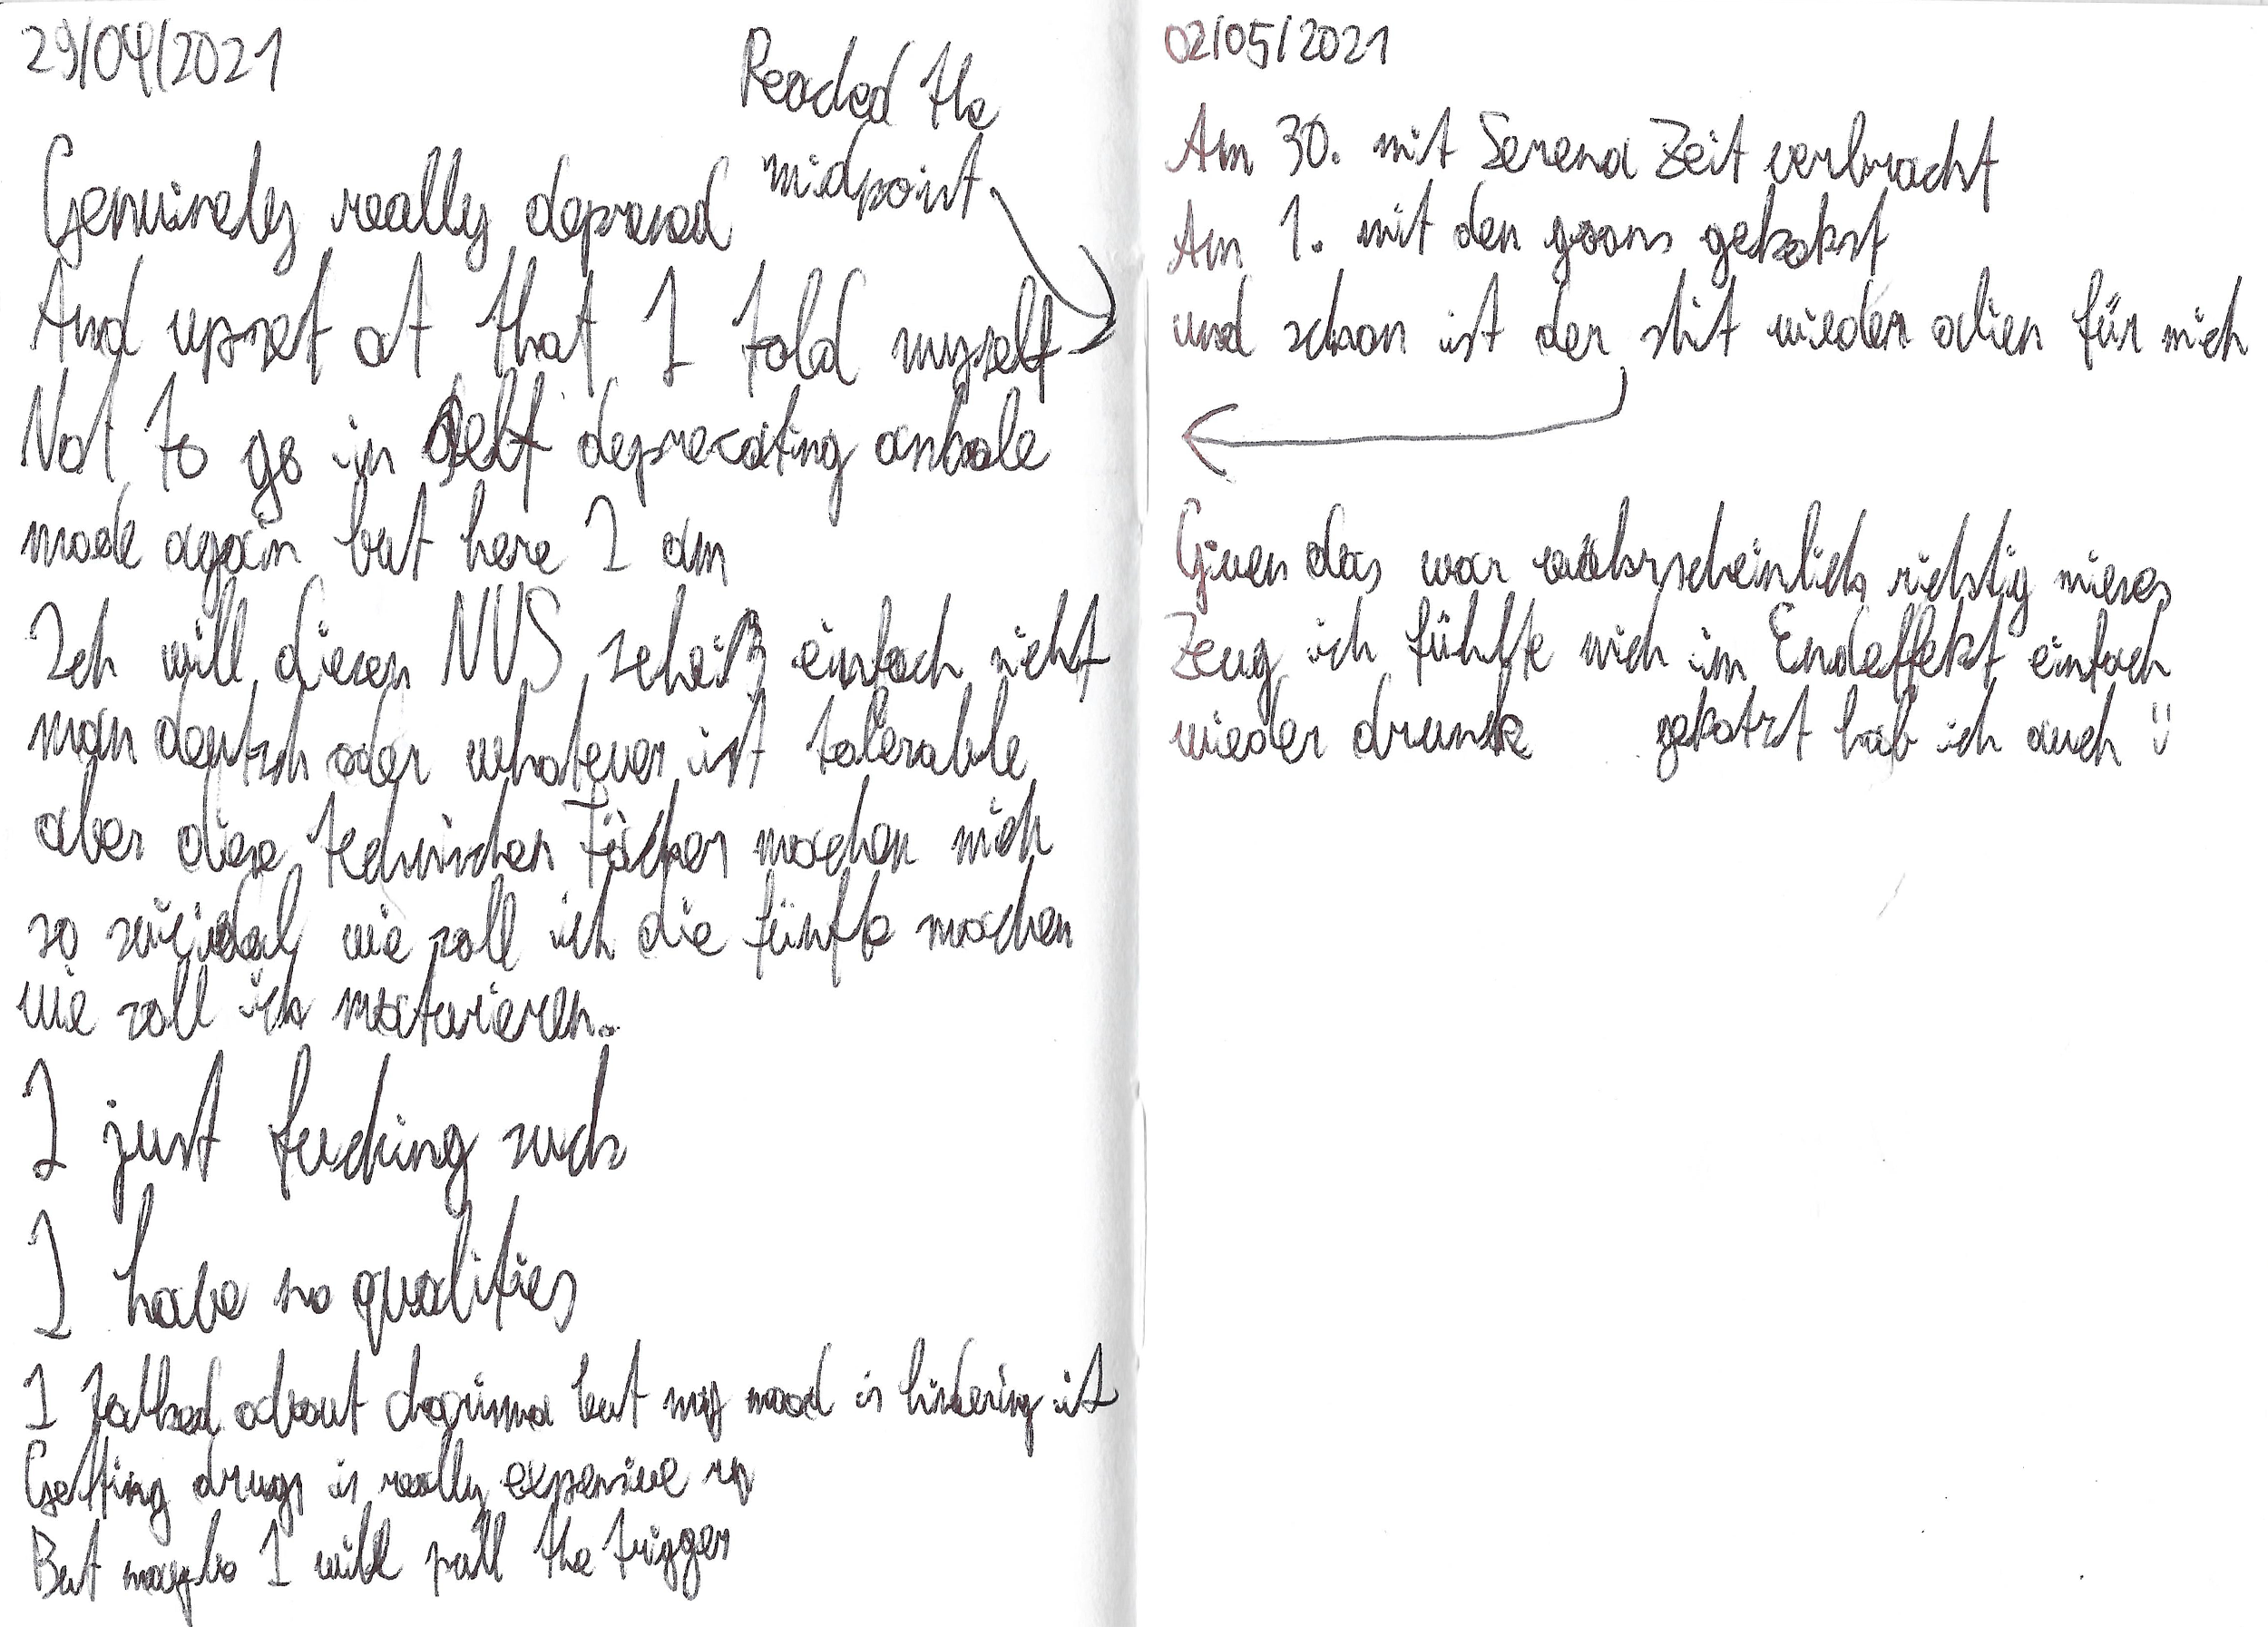 29/04/2021
Reached the
midpoint
Genuinely really depressed
And upset at that I told myself
Not to go in self deprecating asshole
mode again but here I am
Ich will diesen NVS scheiß einfach nicht
man deutsch oder whatever ist tolerable
aber diese technischen Fächer machen mich
so suicidal wie soll ich die fünfte machen
wie soll ich maturieren.
I just fucking suck
I have no qualities
I talked about but my mood is hindering it
Getting drugs is really expensive rn
But maybe I will pull the trigger
02/05/2021
Am 30. mit Serena Zeit verbracht
Am 1. mit den goons gekokst
und schon ist der shit wieder alien für mich
Given das war wahrscheinlich richtig mieses
Zeug ich fühlte mich im Endeffekt einfach
wieder drunk gekotzt hab ich auch